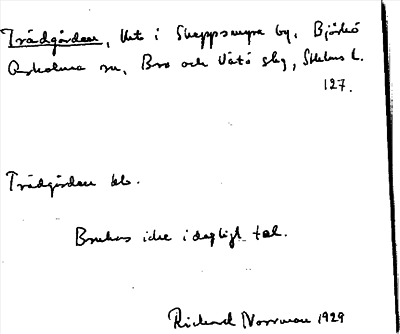 Trädgården, lht i Skeppsmyra by, Björkö
Arholma sn, Bro och Vätö slg, Sthlms l.
127.
Trädgården bb.
Brukas icke i dagligt tal.
Rickard Norrman 1929